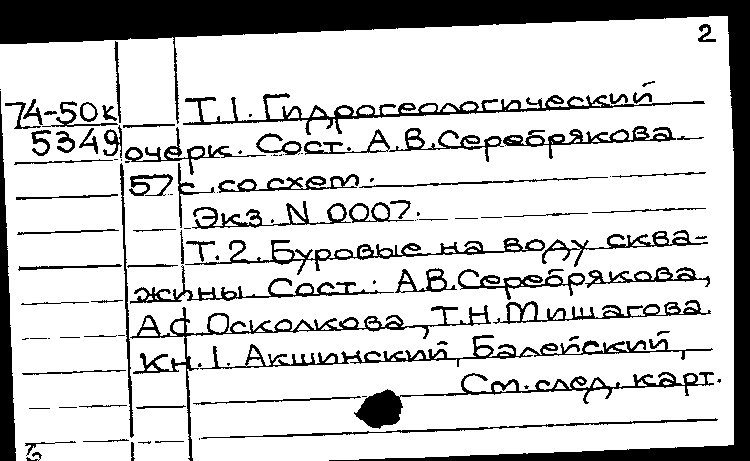 2
74-50к Т.1. Гидрогеологический
5349 очерк. Сост. А.В.Серебрякова.
57с. со схем.
Экз. N 0007.
Т.2. Буровые на воду сква-
жины. Сост.: А.В.Серебрякова,
А.С. Осколкова, Т.Н.Мишагова.
Кн.1. Акшинский, Балейский,
См.след. карт.